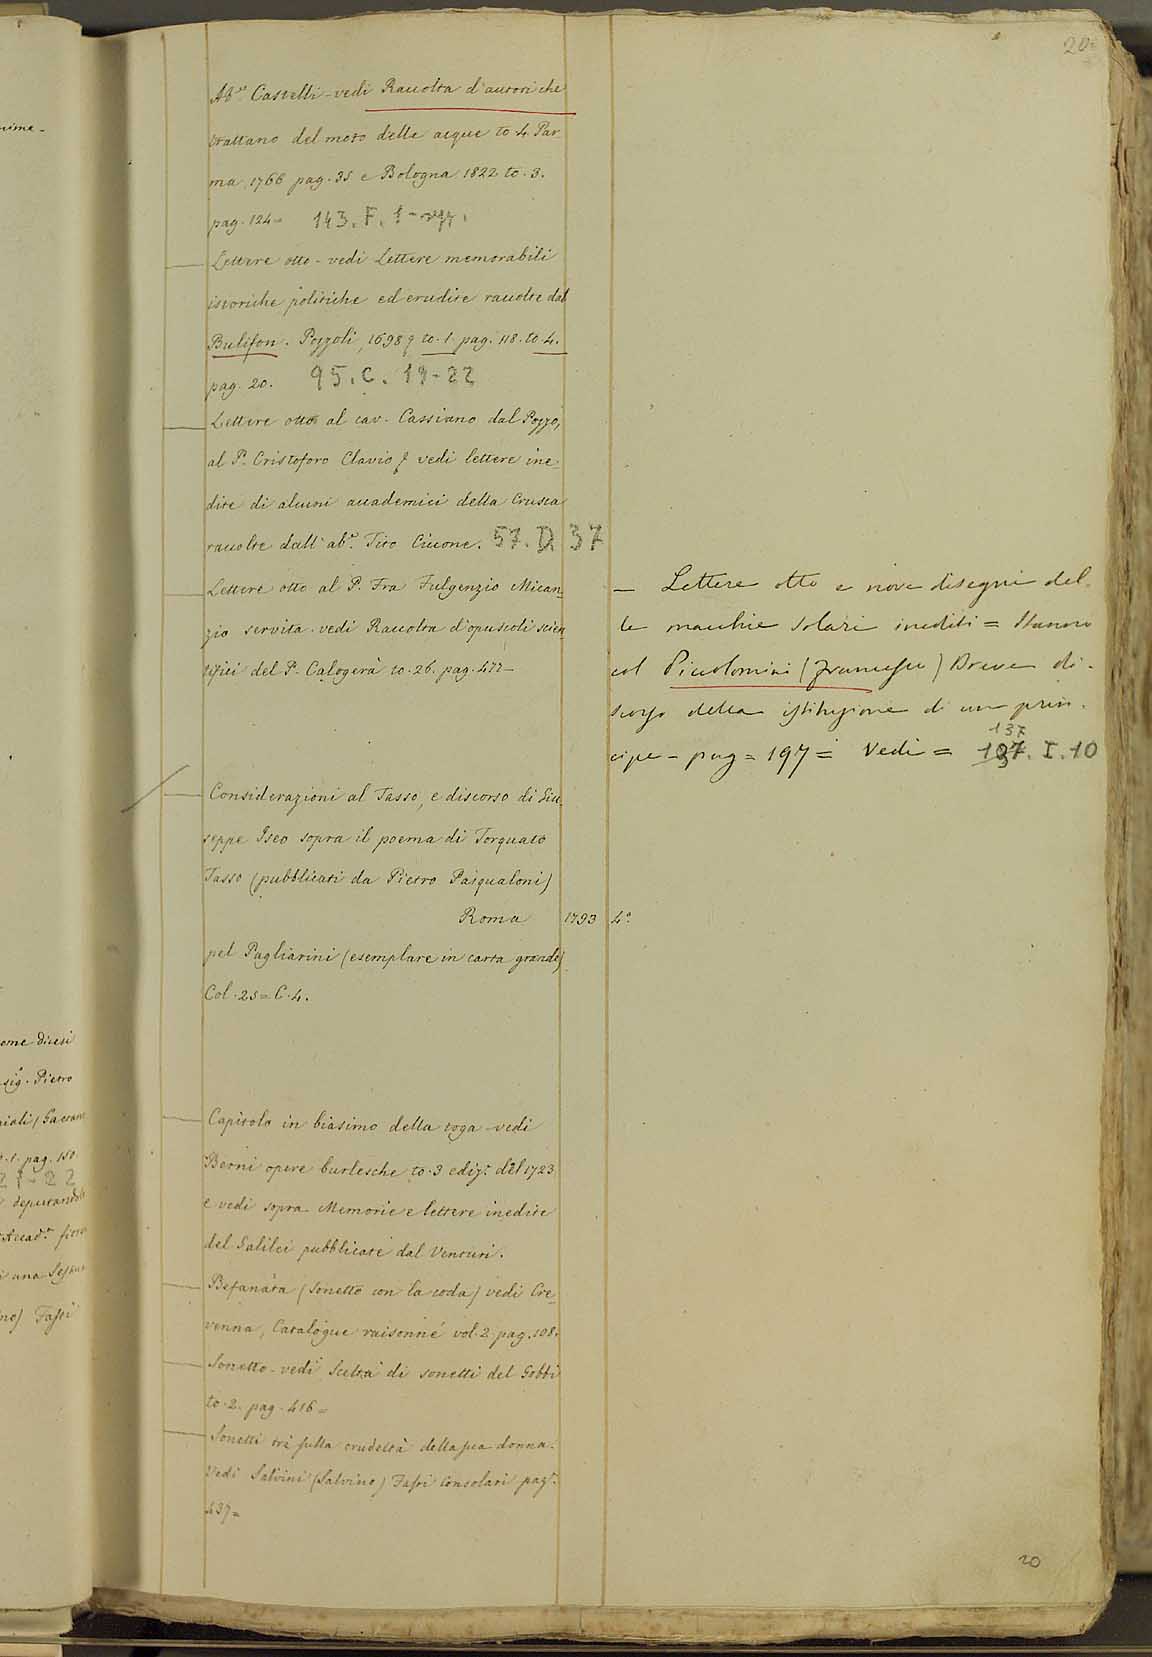 20
Ab.e Castelli - vedi Raccolta d'autori che
trattano del moto delle acque to. 4. Par
ma, 1766 pag. 35 e Bologna 1822 to. 3.
pag. 124 = 143. F. 1 -
Lettere otto - vedi Lettere memorabili
istoriche politiche ed erudite raccolte dal
Bulifon. Pozzoli, 1698 to. 1. pag. 118. to. 4.
pag. 20. 95. C. 19-22
Lettere otto al cav. Cassiano dal Pozzo,
al P. Cristoforo Clavio vedi lettere ine
dite di alcuni accademici della Crusca
raccolte dall'ab.e Tito Cicone. 57. D 37
Lettere otto al P. Fra Fulgenzio Mican_
zio servita. vedi Raccolta d'opuscoli scien
tifici del P. Calogerà to. 26. pag. 477 -
Considerazioni al Tasso, e discorso di Giu_
seppe Iseo sopra il poema di Torquato
Tasso (pubblicati da Pietro Pasqualoni)
Roma 1793 4.o
pel Pagliarini (esemplare in carta grande)
Col. 25 = C. 4.
Capitolo in biasimo della toga - vedi
Berni opere burlesche to. 3 ediz.e del 1723
e vedi sopra Memorie e lettere inedite
del Galilei pubblicate dal Venturi.
Befanata (Sonetto con la coda) vedi Cre_
venna, Catalogue raisonné vol. 2. pag. 108.
Sonetto - vedi Scelta di sonetti del Gobbi
to. 2. pag. 416 =
Sonetti tre sulla crudeltà della sua donna.
Vedi Salvini (Salvino) Fasti consolari pag.
437 =
— Lettere otto e nove disegni del_
le macchie solari inediti = Stanno
col Piccolomini (Francesco) Breve di_
scorso della istituzione di un prin_
cipe - pag = 197 = Vedi = 137. I. 10
20
ome dicesi
sig. Pietro
pag. 150
21-22
deputando
Accad.a
i una
no) Fasti